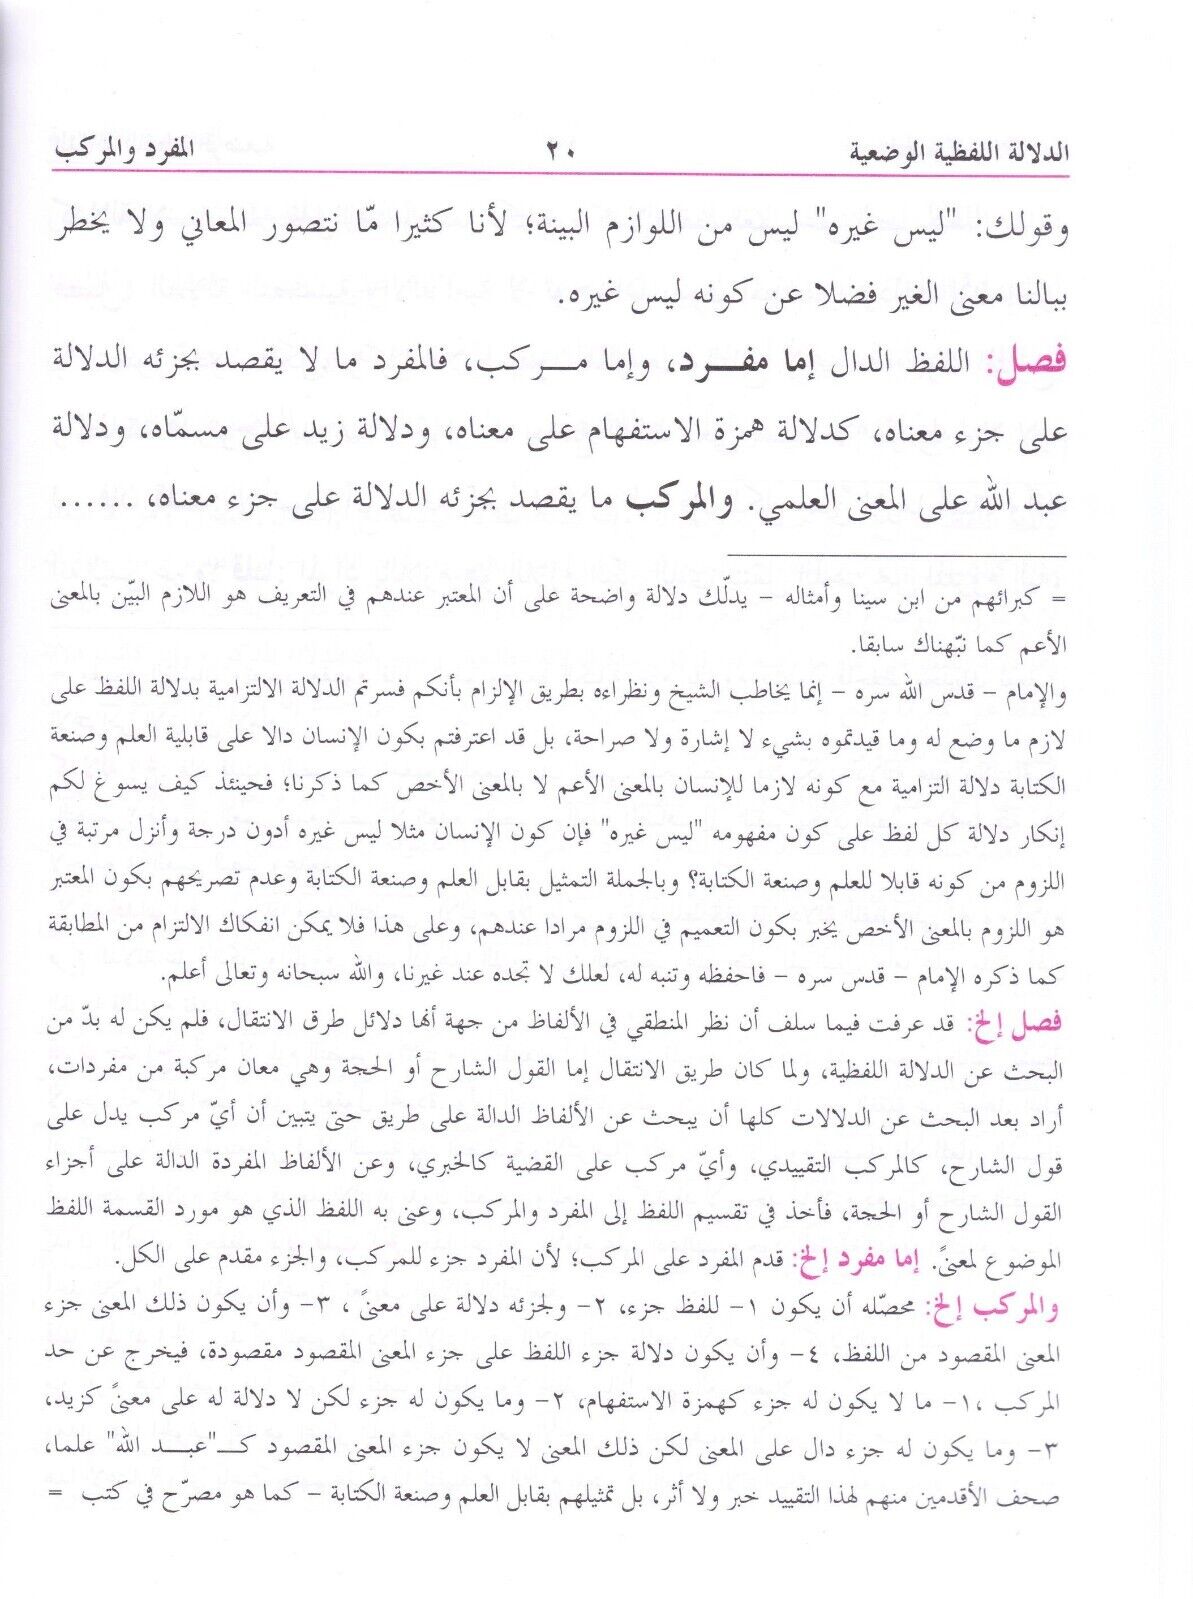 الدلالة اللفظية الوضعية ٢٠ المفرد والمركب
وقولك: "ليس غيره" ليس من اللوازم البينة؛ لأنا كثيرا مّا نتصور المعاني ولا يخطر
ببالنا معنى الغير فضلا عن كونه ليس غيره.
فصل: اللفظ الدال إما مفـــرد، وإما مـــركب، فالمفرد ما لا يقصد بجزئه الدلالة
على جزء معناه، كدلالة همزة الاستفهام على معناه، ودلالة زيد على مسمّاه، ودلالة
عبد الله على المعنى العلمي. والمركب ما يقصد بجزئه الدلالة على جزء معناه، ......
= كبرائهم من ابن سينا وأمثاله – يدلّك دلالة واضحة على أن المعتبر عندهم في التعريف هو اللازم البيّن بالمعنى
الأعم كما نبّهناك سابقا.
والإمام – قدس الله سره – إنما يخاطب الشيخ ونظراءه بطريق الإلزام بأنكم فسرتم الدلالة الالتزامية بدلالة اللفظ على
لازم ما وضع له وما قيدتموه بشيء لا إشارة ولا صراحة، بل قد اعترفتم بكون الإنسان دالا على قابلية العلم وصنعة
الكتابة دلالة التزامية مع كونه لازما للإنسان بالمعنى الأعم لا بالمعنى الأخص كما ذكرنا؛ فحينئذ كيف يسوغ لكم
إنكار دلالة كل لفظ على كون مفهومه "ليس غيره" فإن كون الإنسان مثلا ليس غيره أدون درجة وأنزل مرتبة في
اللزوم من كونه قابلا للعلم وصنعة الكتابة؟ وبالجملة التمثيل بقابل العلم وصنعة الكتابة وعدم تصريحهم بكون المعتبر
هو اللزوم بالمعنى الأخص يخبر بكون التعميم في اللزوم مرادا عندهم، وعلى هذا فلا يمكن انفكاك الالتزام من المطابقة
كما ذكره الإمام – قدس سره – فاحفظه وتنبه له، لعلك لا تجده عند غيرنا، والله سبحانه وتعالى أعلم.
فصل إلخ: قد عرفت فيما سلف أن نظر المنطقي في الألفاظ من جهة أنها دلائل طرق الانتقال، فلم يكن له بدّ من
البحث عن الدلالة اللفظية، ولما كان طريق الانتقال إما القول الشارح أو الحجة وهي معان مركبة من مفردات،
أراد بعد البحث عن الدلالات كلها أن يبحث عن الألفاظ الدالة على طريق حتى يتبين أن أيّ مركب يدل على
قول الشارح، كالمركب التقييدي، وأيّ مركب على القضية كالخبري، وعن الألفاظ المفردة الدالة على أجزاء
القول الشارح أو الحجة، فأخذ في تقسيم اللفظ إلى المفرد والمركب، وعنى به اللفظ الذي هو مورد القسمة اللفظ
الموضوع لمعنىً. إما مفرد إلخ: قدم المفرد على المركب؛ لأن المفرد جزء للمركب، والجزء مقدم على الكل.
والمركب إلخ: محصّله أن يكون ١– للفظ جزء، ٢– ولجزئه دلالة على معنىً ، ٣– وأن يكون ذلك المعنى جزء
المعنى المقصود من اللفظ، ٤– وأن يكون دلالة جزء اللفظ على جزء المعنى المقصود مقصودة، فيخرج عن حد
المركب ،١– ما لا يكون له جزء كهمزة الاستفهام، ٢– وما يكون له جزء لكن لا دلالة له على معنىً كزيد،
٣– وما يكون له جزء دال على المعنى لكن ذلك المعنى لا يكون جزء المعنى المقصود كــ"عبــد الله" علما،
صحف الأقدمين منهم لهذا التقييد خبر ولا أثر، بل تمثيلهم بقابل العلم وصنعة الكتابة – كما هو مصرّح في كتب =